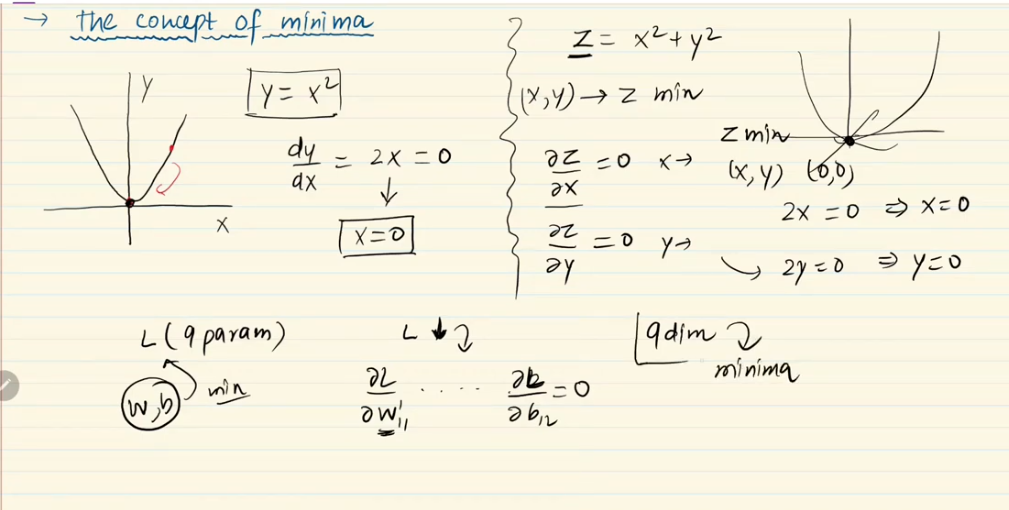 → the concept of minima
y
y = x²
dy/dx = 2x = 0
↓
x=0
x
z = x²+y²
(x,y) → z min
∂z/∂x = 0 x→
∂z/∂y = 0 y→
z min
(x,y) (0,0)
2x = 0 ⇒ x=0
2y=0 ⇒ y=0
L (9 param)
w,b min
L ↓
∂L/∂w¹₁₁ .... ∂L/∂b₁₂ = 0
9 dim
minima